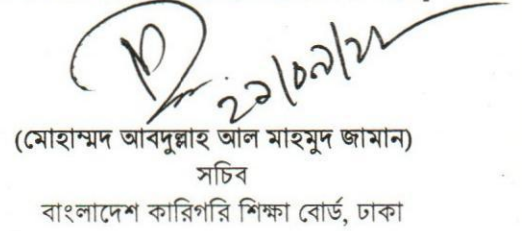 ২১/০৯/২২
(মোহাম্মদ আবদুল্লাহ আল মাহমুদ জামান)
সচিব
বাংলাদেশ কারিগরি শিক্ষা বোর্ড, ঢাকা